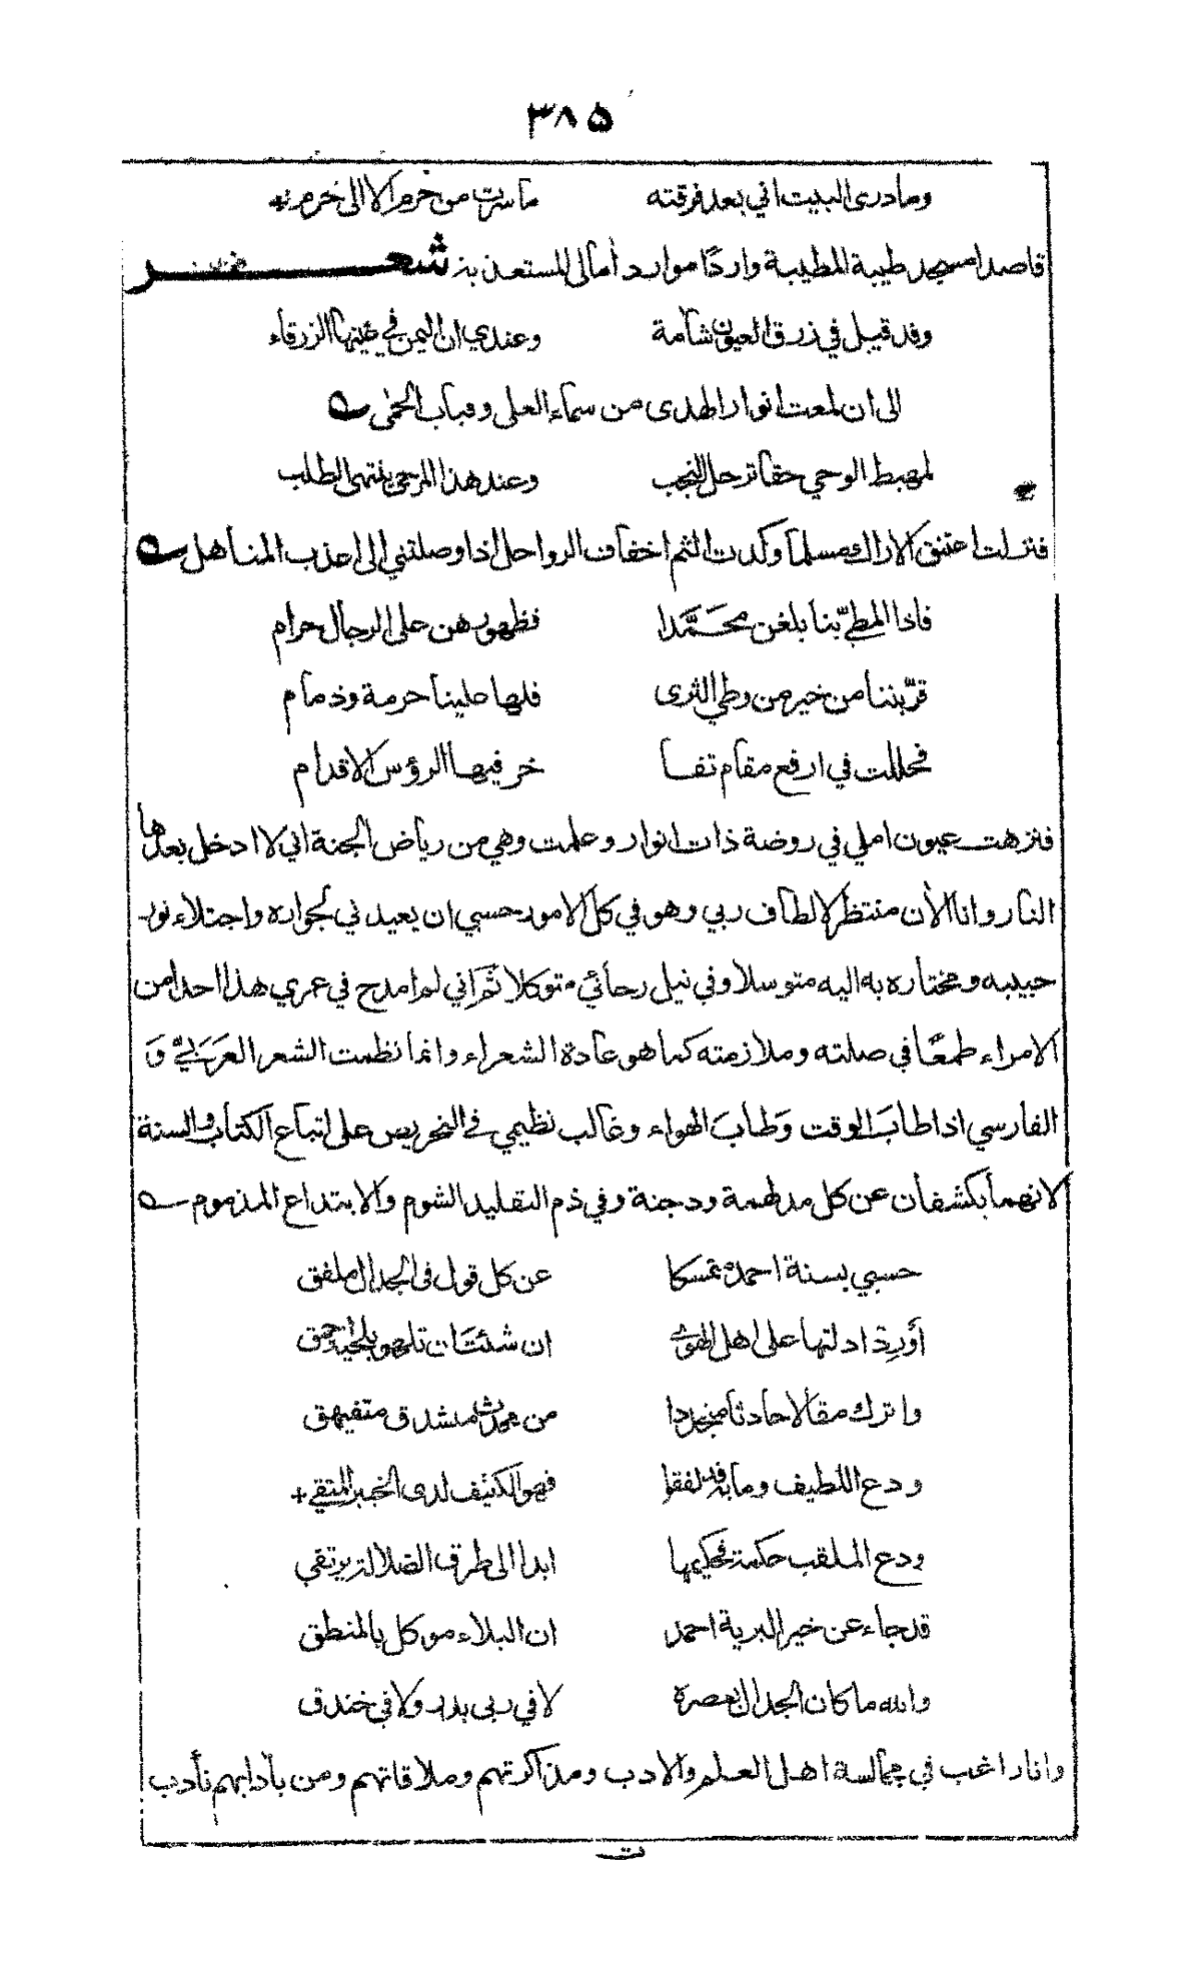 ٣٨٥
وما درى البيت اني بعد فرقته ما سرت من حرم الا الى حرم +
قاصدا مسجد طيبة المطيبة واردًا موارد أمالى المستعذبة شعر
وقد قيل في زرق العيون شآمة وعندي ان اليمن في عينها الزرقاء
الى ان لمعت انوار الهدى من سماء العلى وقباب الحمى
لمهبط الوحي حقا ترحل النجب وعند هذا المرجى ينتهى الطلب
فنزلت اعتنق الاراك مسلما وكدت الثم اخفاف الرواحل اذا وصلتني الى اعذب المناهل
فاذا المطيّ بنا بلغن محَمَّدا فظهورهن على الرجال حرام
قرّبننا من خير من وطي الثرى فلها علينا حرمة وذمام
فحللت في ارفع مقام تفا خر فيها الرؤس الاقدام
فنزهت عيون املي في روضة ذات انوار وعلمت وهي من رياض الجنة اني لا ادخل بعدها
النار وانا الأن منتظر لالطاف ربي وهو في كل الامور حسبي ان يعيدني لجواره واجتلاء نور
حبيبه ومختاره به اليه متوسلا وفي نيل رجائي متوكلا ثم اني لم امدح في عمري هذا احدا من
الامراء طمعًا في صلته وملازمته كما هو عادة الشعراء وانما نظمت الشعر العَرَبيَّ وَ
الفارسي اذا طابَ الوقت وَطابَ الهواء وغالب نظيمي في التحريص على اتباع الكتاب والسنة
لانهما يكشفان عن كل مدلهمة ودجنة وفي ذم التقليد الشوم والابتداع المذموم
حسبي بسنة احمد متمسكا عن كل قول في الجدال ملفق
أورد ادلتها على اهل الهوى ان شئت ان تلهو بلحية احمق
واترك مقالا حادثا متجددا من محدث متشدق متفيهق
ودع اللطيف وما به قد لفقوا فهو الكثيف لدى الخبير المتقي +
ودع الملقب حكمة فحكيمها ابدا الى طرق الضلالة يرتقي
قد جاء عن خير البرية احمد ان البلاء موكل بالمنطق
والله ما كان الجدال بعصره لا في ربى بدر ولا في خندق
وانا راغب في مجالسة اهل العلم والادب ومذاكرتهم وملاقاتهم ومن بآدابهم تأدب
ت